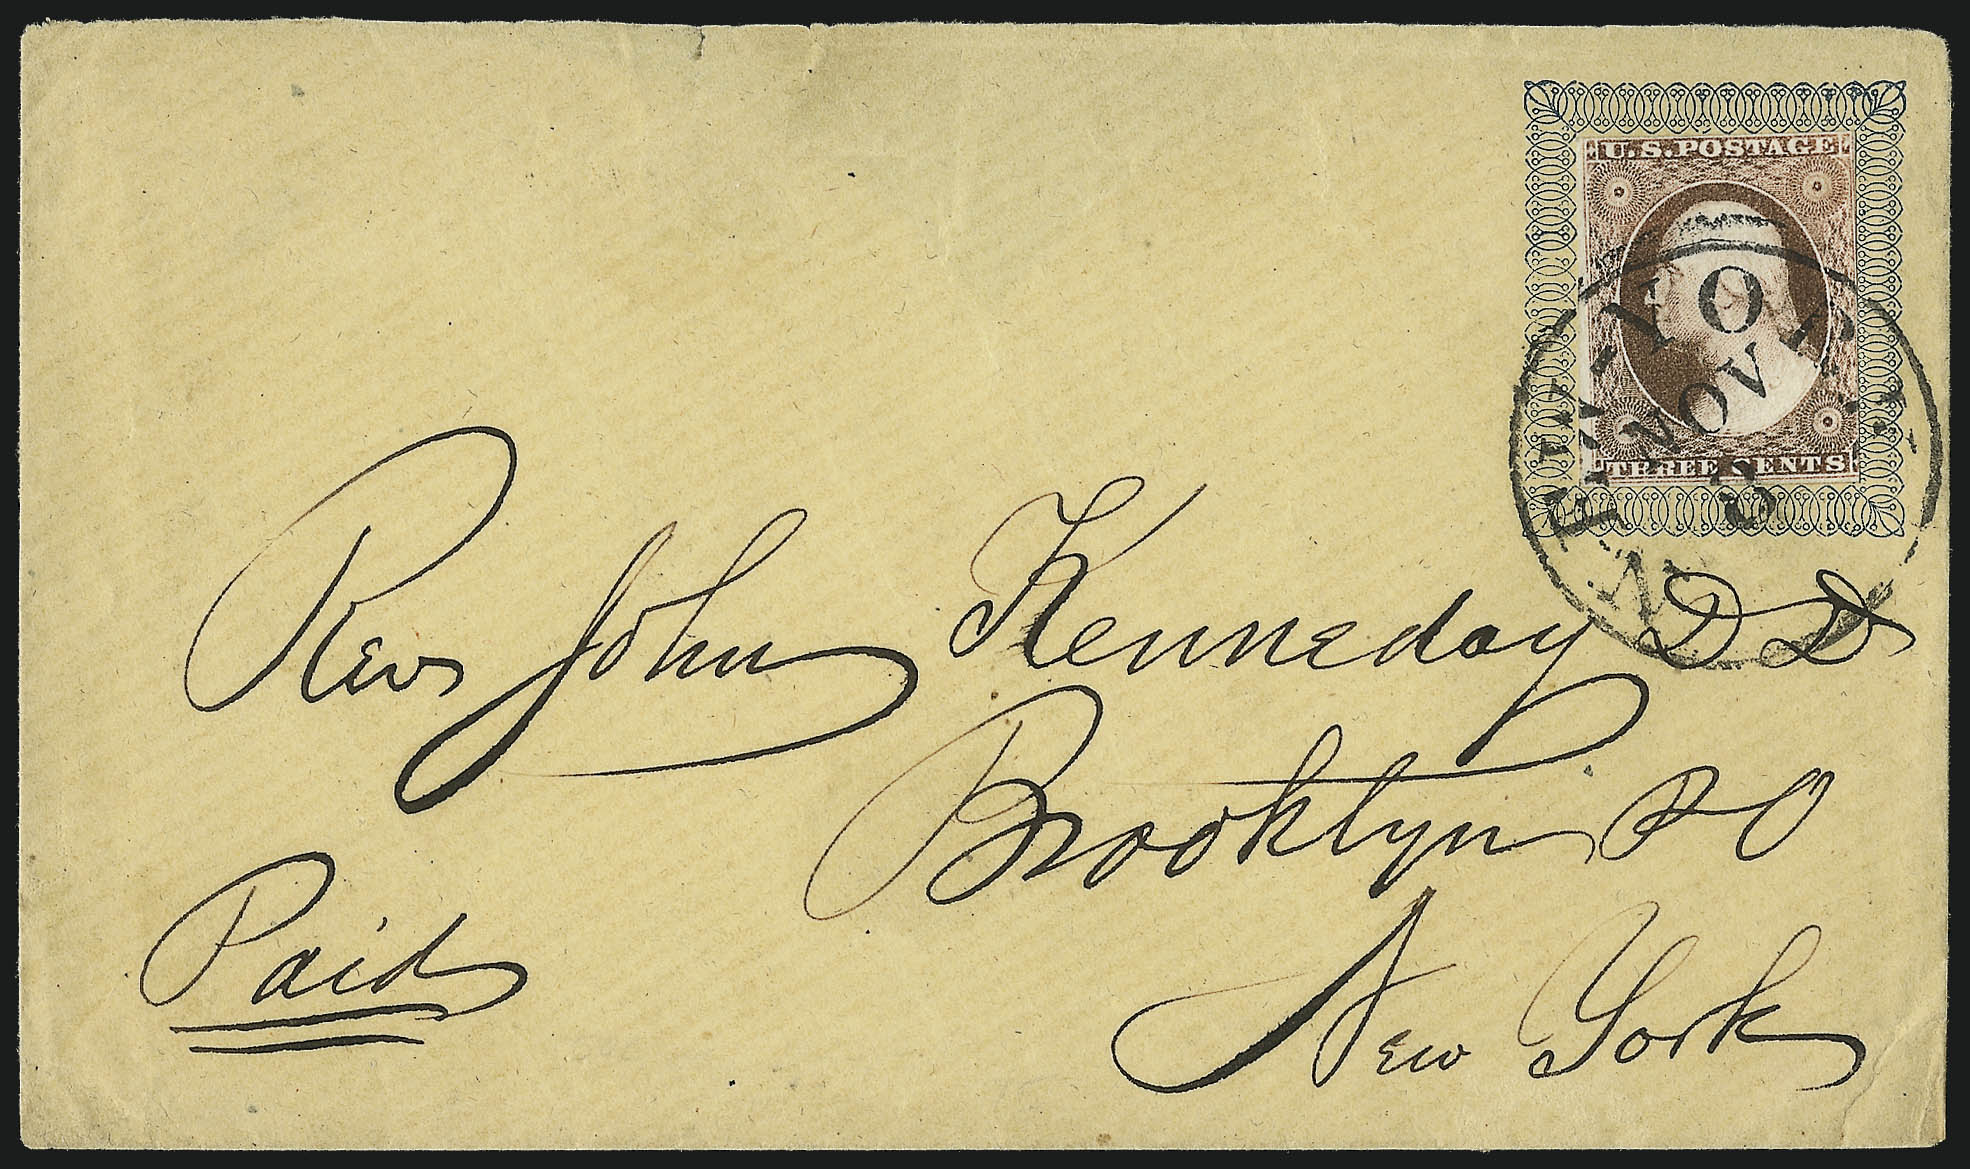 U.S. POSTAGE
THREE CENTS
NEW-YORK
NOV
Rev John Kenneday D D
Brooklyn P O
New York
Paid